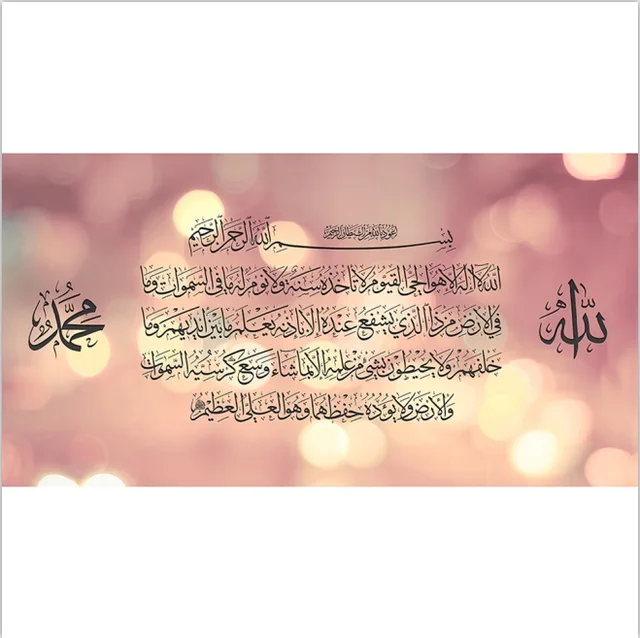 أعوذ بالله من الشيطان الرجيم
بسم الله الرحمن الرحيم
الله لا إله إلا هو الحي القيوم لا تأخذه سنة ولا نوم له ما في السموات وما
في الأرض من ذا الذي يشفع عنده إلا بإذنه يعلم ما بين أيديهم وما
خلفهم ولا يحيطون بشيء من علمه إلا بما شاء وسع كرسيه السموات
والأرض ولا يؤده حفظهما وهو العلي العظيم
الله
محمد